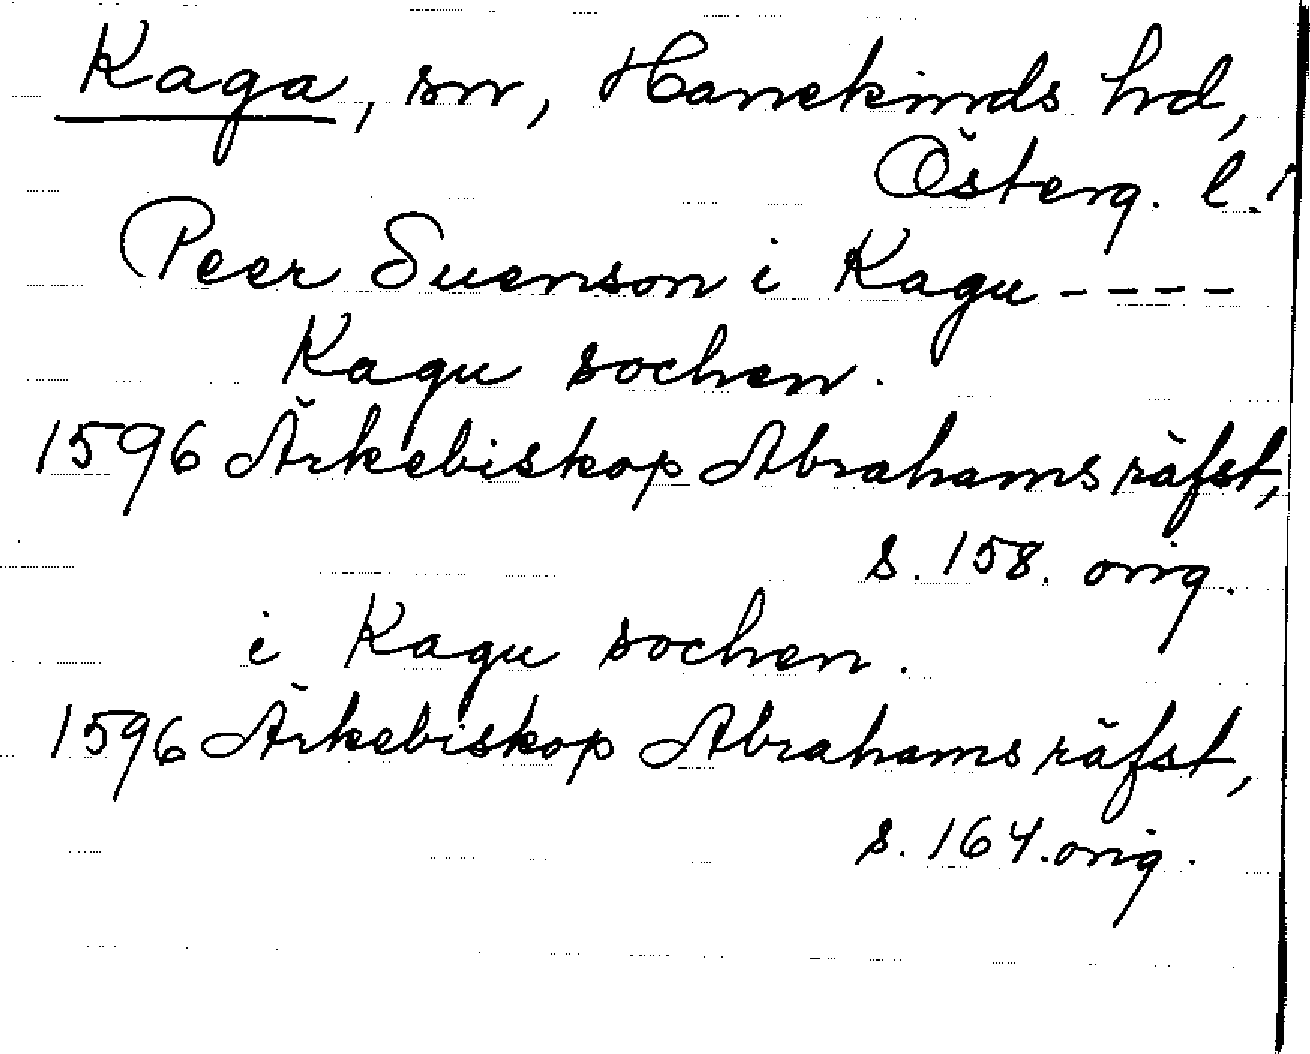 Kaga, sn, Hanekinds hd,
Österg. l.
Peer Suenson i Kagu - - - -
Kagu sochen.
1596 Ärkebiskop Abrahams räfst,
s. 158. orig.
i Kagu sochen.
1596 Ärkebiskop Abrahams räfst,
s. 164. orig.